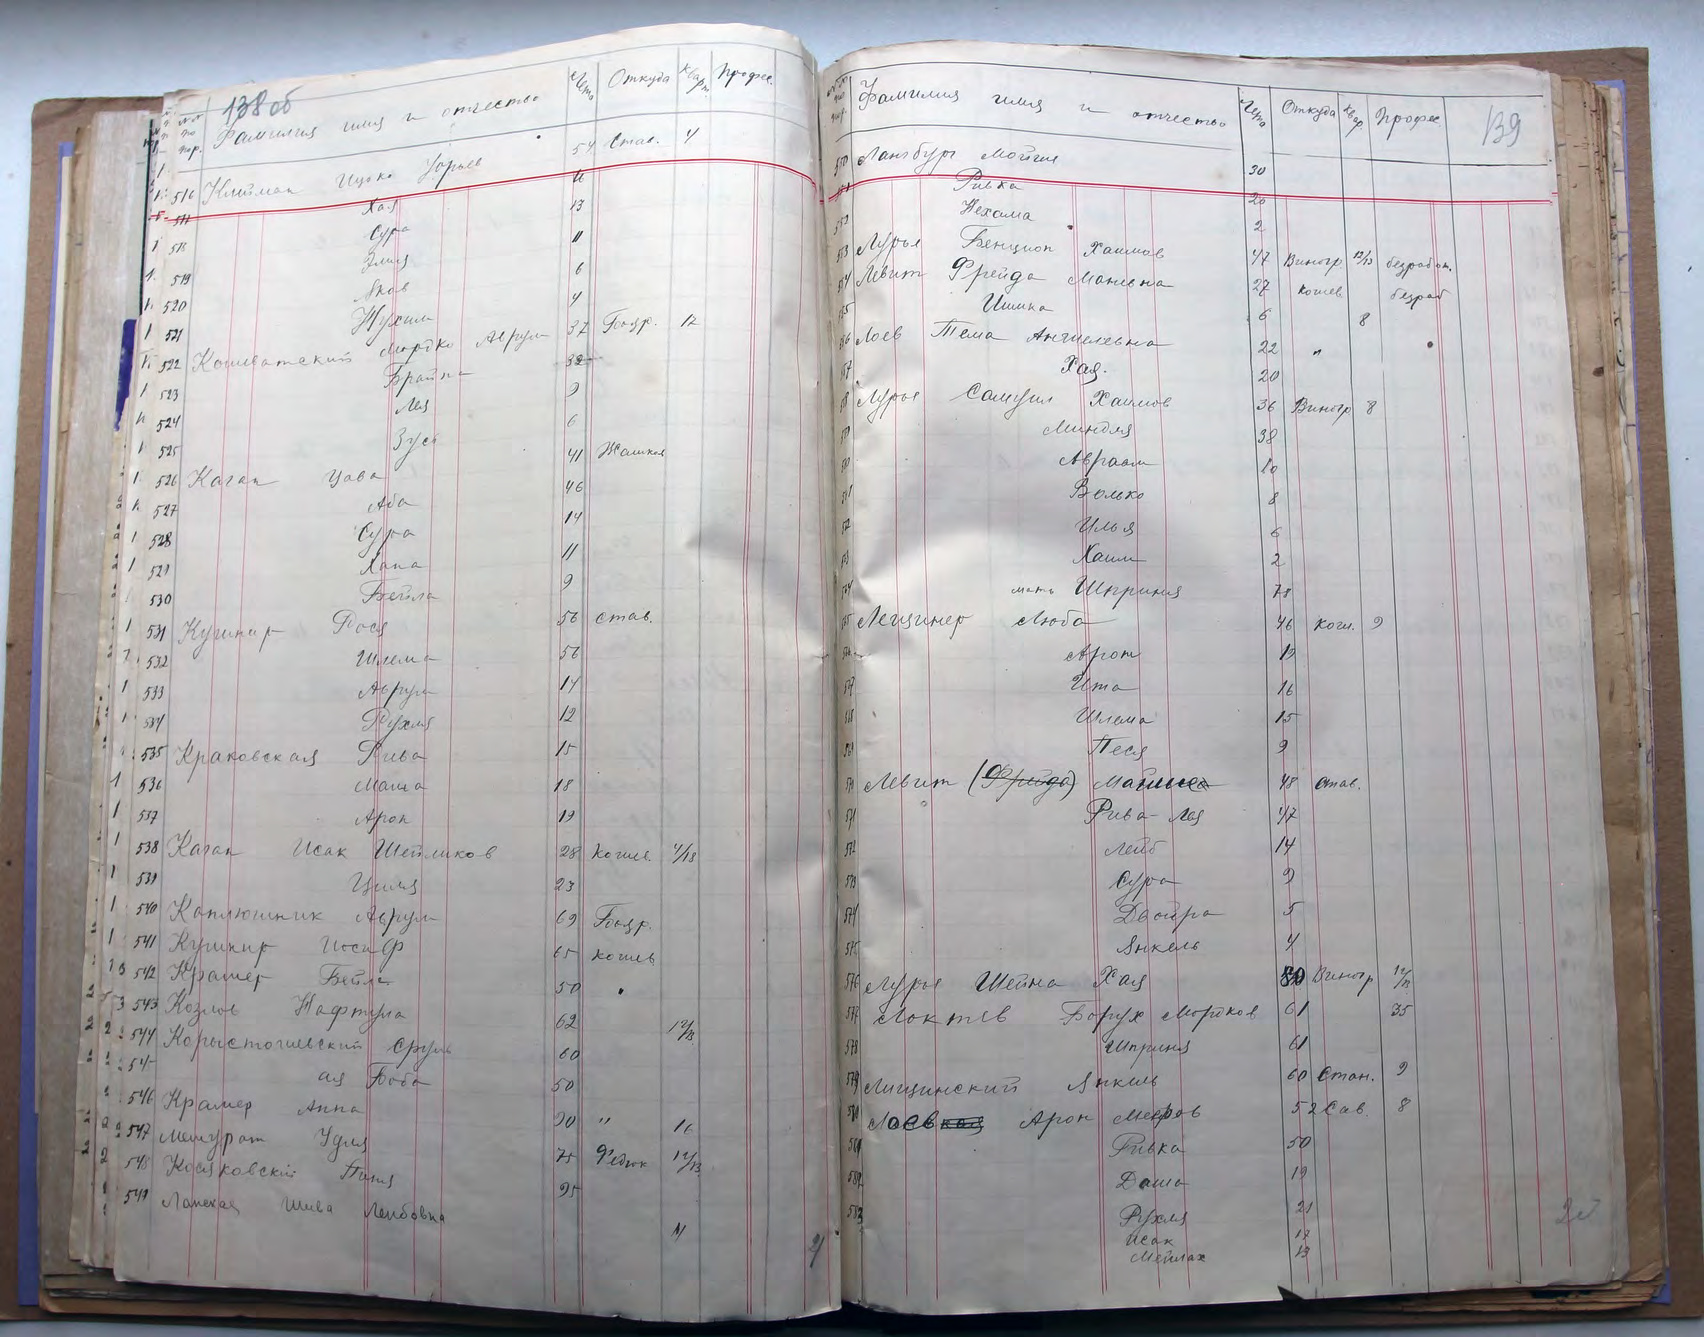 138 об
№№ по пор. Фамилия имя и отчество Лета Откуда Кварт. Профес.
516 Клейман Ицко Юрьев 54 Став. 4
Хая
518 Сура 13
519 Эмия 11
520 Яков 6
521 Нухим 4
522 Кошеватский Мордко Аврум 37 Богр. 12
523 Брайна 32
524 Лея 9
525 Зуся 6
526 Каган Хава 41 Жашков
527 Аба 46
528 Сура 14
529 Хана 11
530 Бейла 9
531 Кушнир Бося 56 Став.
532 Шлема 56
533 Аврум 14
534 Рухля 12
535 Краковская Рива 15
536 Маша 18
537 Арон 19
538 Каган Исак Шейликов 28 Кошев. 4/13
539 Циля 23
540 Каплюшник Аврум 69 Богр.
541 Кушнир Иосиф 65 Кошев
542 Крамер Бейла 50 "
543 Козлов Нафтула 62 12/13
544 Корыстошевский Сруль 60
545 ая Боба 50
546 Крамер Анна 90 " 16
547 Удля 75 12/13
548 Косяковский Пиня 95
549 Ланская Шива Лейбовна 11
139
Фамилия имя и отчество Лета Откуда Квар. Профес.
550 Лансбург Мойше 30
Ривка 26
552 Нехама 2
553 Лурье Бенцион Хаимов 47 Виногр 12/13 безработ.
554 Левит Фрейда Маньевна 27 Кошев безраб
555 Шимка 6 8
556 Лоев Тема Анчелевна 22 "
557 Хая. 20
558 Лурье Самуил Хаимов 36 Виногр 8
559 Миндля 38
560 Авраам 10
561 Волько 8
562 Илья 6
563 Хаим 2
564 мать Шприня 78
565 Лещинер Люба 46 Кош. 9
566 Арон 19
567 Ита 16
568 Шлема 15
569 Песя 9
570 Левит (Фрейда) 48 Став.
571 Рива-Лея 47
572 Лейб 14
573 Сура 9
574 Двойра 5
575 Янкель 4
576 Лурье Шейна Хая 50 Виногр 12/13
577 Локтев Борух Мордков 61 35
578 Шприня 61
579 Лищинский Янкель 60 Стан. 9
580 Лоевская Арон Мееров 52 Сав. 8
581 Ривка 50
582 Даша 19
583 Рухля 21
Исак 17
Мейлах 13